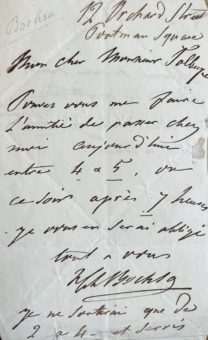 Bochsa
12 Orchard Street
Portman Square
Mon cher Monsieur
Pouvez vous me faire
L'amitié de passer chez
moi aujourd'hui
entre 4 à 5, ou
ce soir après 7 heures
je vous en serai obligé
tout à vous
Bochsa
je ne sortirai que de
2 à 4 et